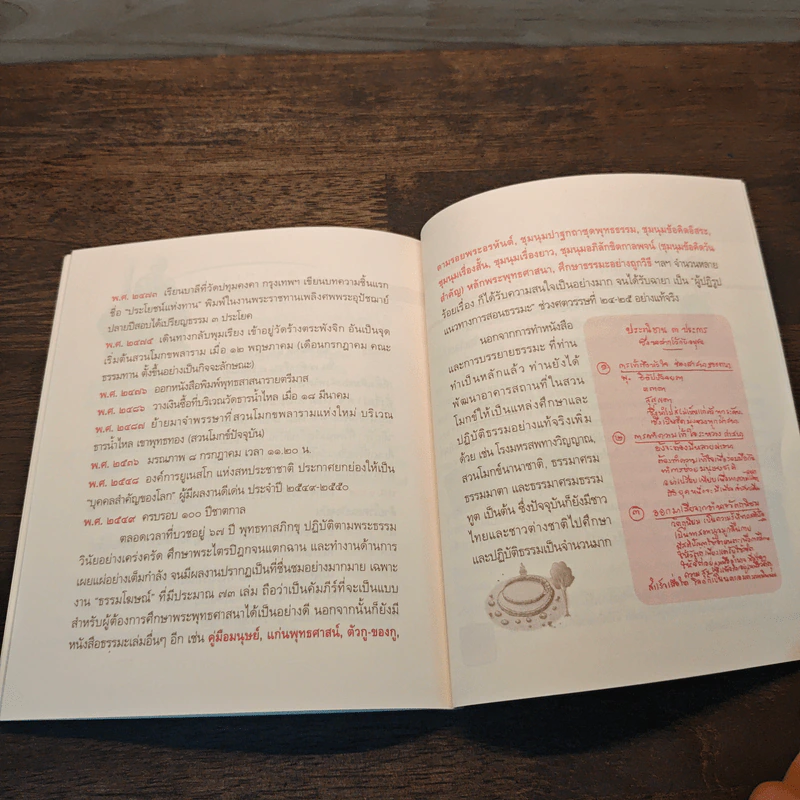 พ.ศ. ๒๔๗๓ เรียนบาลีที่วัดปทุมคงคา กรุงเทพฯ เขียนบทความชิ้นแรก
ชื่อ "ประโยชน์แห่งทาน" พิมพ์ในงานพระราชทานเพลิงศพพระอุปัชฌาย์
ปลายปีสอบได้เปรียญธรรม ๓ ประโยค
พ.ศ. ๒๔๗๕ เดินทางกลับพุมเรียง เข้าอยู่วัดร้างตระพังจิก อันเป็นจุด
เริ่มต้นสวนโมกขพลาราม เมื่อ ๑๒ พฤษภาคม (เดือนกรกฎาคม คณะ
ธรรมทาน ตั้งขึ้นอย่างเป็นกิจจะลักษณะ)
พ.ศ. ๒๔๗๖ ออกหนังสือพิมพ์พุทธสาสนารายตรีมาส
พ.ศ. ๒๔๘๖ วางเงินซื้อที่บริเวณวัดธารน้ำไหล เมื่อ ๑๘ มีนาคม
พ.ศ. ๒๔๘๗ ย้ายมาจำพรรษาที่สวนโมกขพลารามแห่งใหม่ บริเวณ
ธารน้ำไหล เขาพุทธทอง (สวนโมกข์ปัจจุบัน)
พ.ศ. ๒๕๓๖ มรณภาพ ๘ กรกฎาคม เวลา ๑๑.๒๐ น.
พ.ศ. ๒๕๔๘ องค์การยูเนสโก แห่งสหประชาชาติ ประกาศยกย่องให้เป็น
"บุคคลสำคัญของโลก" ผู้มีผลงานดีเด่น ประจำปี ๒๕๔๙-๒๕๕๐
พ.ศ. ๒๕๔๙ ครบรอบ ๑๐๐ ปีชาตกาล
ตลอดเวลาที่บวชอยู่ ๖๗ ปี พุทธทาสภิกขุ ปฏิบัติตามพระธรรม
วินัยอย่างเคร่งครัด ศึกษาพระไตรปิฎกจนแตกฉาน และทำงานด้านการ
เผยแผ่อย่างเต็มกำลัง จนมีผลงานปรากฏเป็นที่ชื่นชมอย่างมากมาย เฉพาะ
งาน "ธรรมโฆษณ์" ที่มีประมาณ ๗๓ เล่ม ถือว่าเป็นคัมภีร์ที่จะเป็นแบบ
สำหรับผู้ต้องการศึกษาพระพุทธศาสนาได้เป็นอย่างดี นอกจากนั้นก็ยังมี
หนังสือธรรมะเล่มอื่นๆ อีก เช่น คู่มือมนุษย์, แก่นพุทธศาสน์, ตัวกู-ของกู,
ตามรอยพระอรหันต์, ชุมนุมปาฐกถาชุดพุทธธรรม, ชุมนุมข้อคิดอิสระ,
ชุมนุมเรื่องสั้น, ชุมนุมเรื่องยาว, ชุมนุมอภิลักขิตกาลพจน์ (ชุมนุมข้อคิดวัน
สำคัญ) หลักพระพุทธศาสนา, ศึกษาธรรมะอย่างถูกวิธี ฯลฯ จำนวนหลาย
ร้อยเรื่อง ก็ได้รับความสนใจเป็นอย่างมาก จนได้รับฉายา เป็น "ผู้ปฏิรูป
แนวทางการสอนธรรมะ" ช่วงศตวรรษที่ ๒๔-๒๕ อย่างแท้จริง
นอกจากการทำหนังสือ
และการบรรยายธรรมะ ที่ท่าน
ทำเป็นหลักแล้ว ท่านยังได้
พัฒนาอาคารสถานที่ในสวน
โมกข์ให้เป็นแหล่งศึกษาและ
ปฏิบัติธรรมอย่างแท้จริงเพิ่ม
ด้วย เช่น โรงมหรสพทางวิญญาณ,
สวนโมกข์นานาชาติ, ธรรมาศรม
ธรรมมาตา และธรรมาศรมธรรม
ทูต เป็นต้น ซึ่งปัจจุบันก็ยังมีชาว
ไทยและชาวต่างชาติไปศึกษา
และปฏิบัติธรรมเป็นจำนวนมาก
ประณิธาน ๓ ประการ
๑
๒
๓